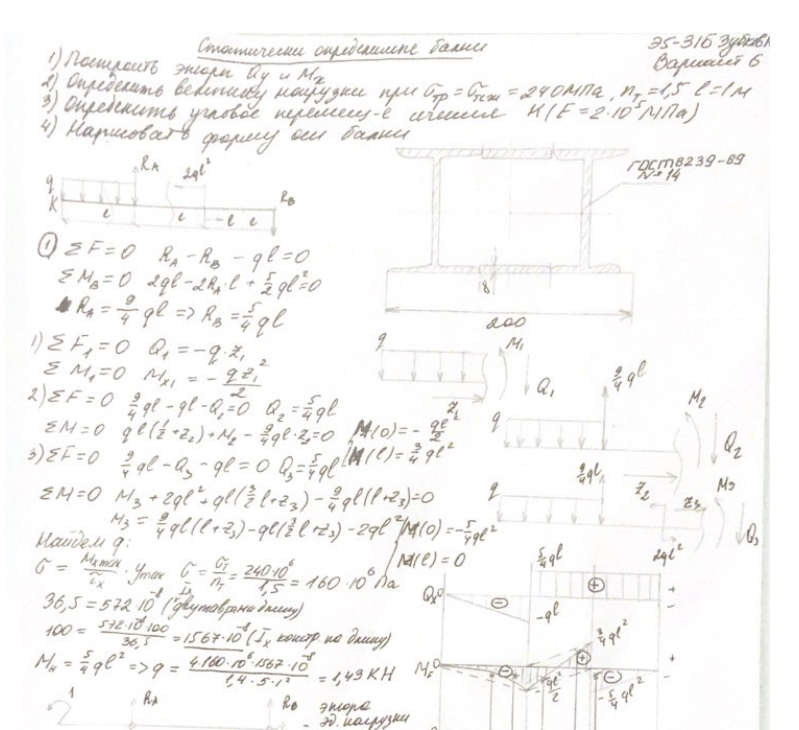 Статически определимые балки
Э5-31Б Зубков
Вариант 6
1) Построить эпюры Qy и Mx
2) Определить величину нагрузки при σтр = σтсж = 240МПа, nт=1,5 l=1м
3) Определить угловое перемещ-е сечения К (E=2·10⁵МПа)
4) Нарисовать форму оси балки
RA
2ql²
q
K
RB
l
l
l
ГОСТ 8239-89
№14
8
200
① ΣF=0 RA - RB - ql=0
ΣMB=0 2ql-2RA·l+5/2ql²=0
RA=9/4 ql => RB=5/4 ql
1) ΣF1=0 Q1=-q·z1
ΣM1=0 Mx1=-qz1²/2
q
M1
Q1
z1
2) ΣF=0 9/4ql-ql-Q2=0 Q2=5/4ql
ΣM=0 ql(l/2+z2)+M2-9/4ql·z2=0
M(0)=-ql²/2
M(l)=3/4ql²
q
9/4ql
M2
Q2
z2
3) ΣF=0 9/4ql-Q3-ql=0 Q3=5/4ql
ΣM=0 M3+2ql²+ql(3/2l+z3)-9/4ql(l+z3)=0
M3=9/4ql(l+z3)-ql(3/2l+z3)-2ql²
M(0)=-5/4ql²
M(l)=0
q
9/4ql
2ql²
z3
M3
Q3
Найдем q:
σ=Mxmax/Ix·ymax σ=σт/nт=240·10⁶/1,5=160·10⁶Па
36,5=572·10⁻⁸ (двутавра на длину)
100=572·10⁻⁸·100/36,5=1567·10⁻⁸ (Ix констр на длину)
Mн=5/4ql² => q=4·160·10⁶·1567·10⁻⁸/1,4·5·1²=1,43KH
5/4ql
-ql
+
-
3/4ql²
-ql²/2
-5/4ql²
+
-
1
RA
RB
эпюра
ед. нагрузки